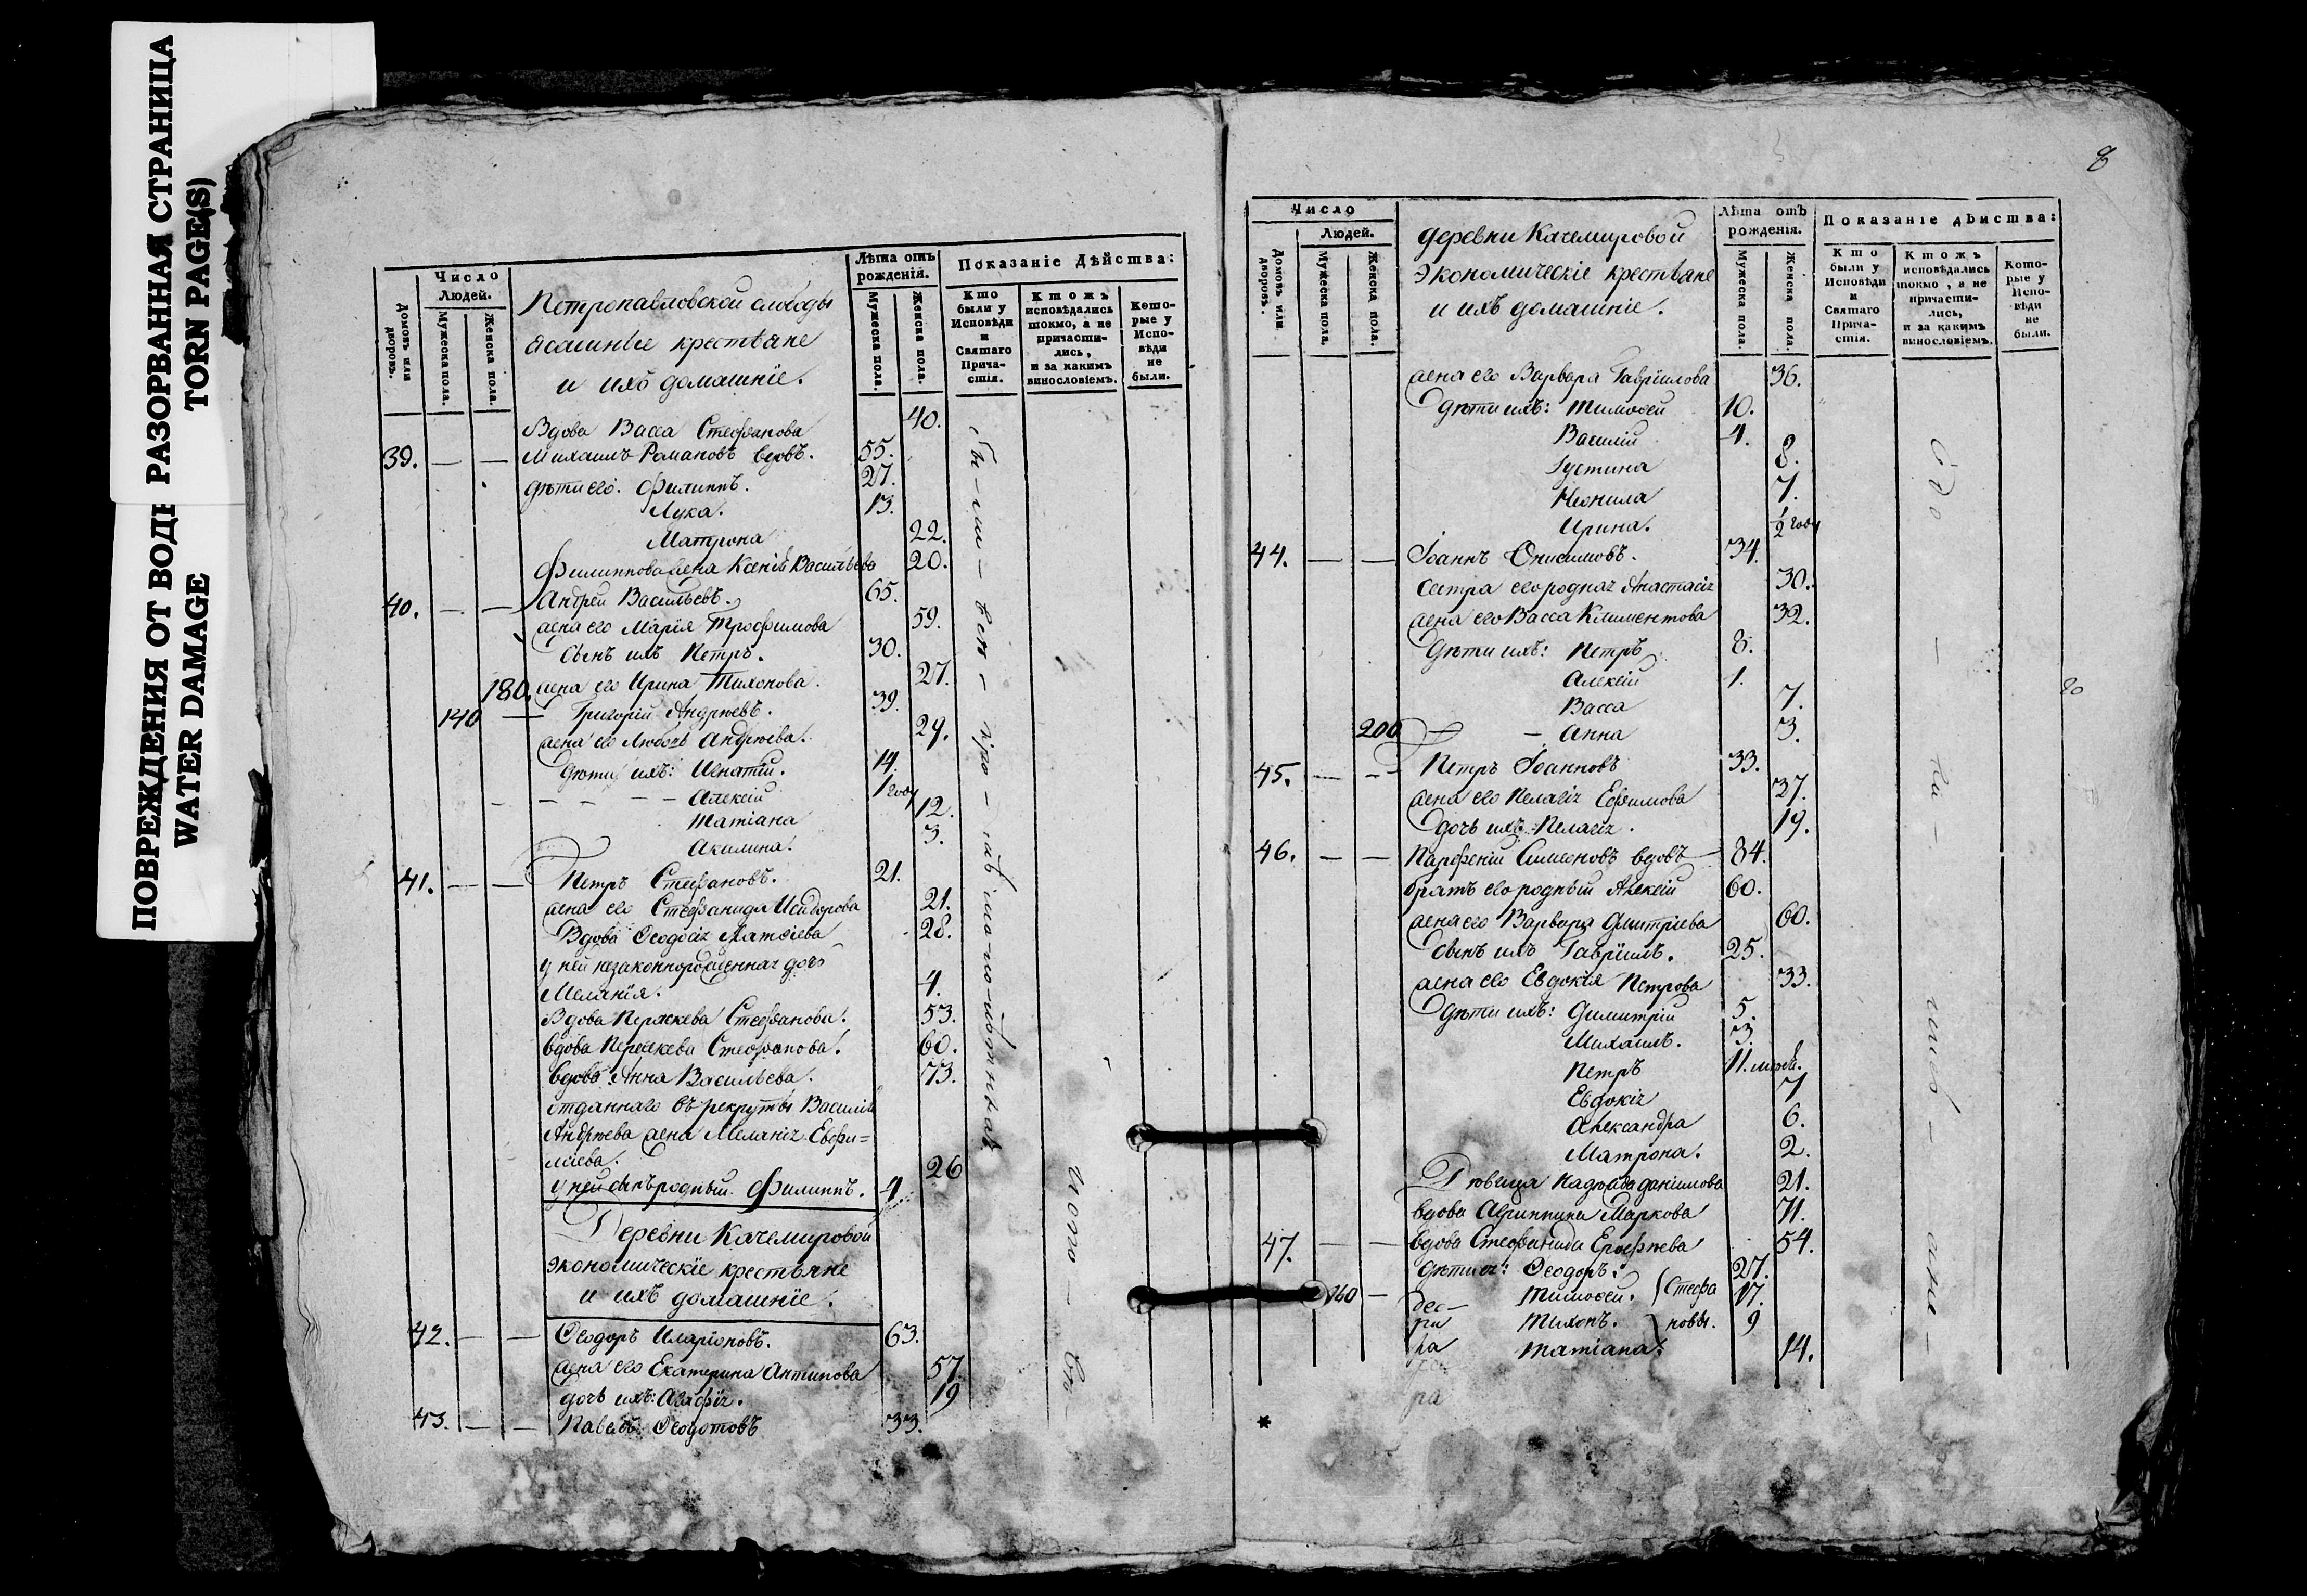 ПОВРЕЖДЕНИЯ ОТ ВОДЫ
WATER DAMAGE
РАЗОРВАННАЯ СТРАНИЦА
TORN PAGE(S)
Число
Людей.
Домовъ или дворовъ.
Мужеска пола.
Женска пола.
Петропавловской слободы
ясашные крестьяне
и ихъ домашніе.
Лѣта отъ рожденія.
Мужеска пола.
Женска пола.
Показаніе Дѣйства:
Кто были у Исповѣди и Святаго Причастія.
Ктожъ исповѣдались токмо, а не причастились, и за какимъ винословіемъ.
Которые у Исповѣди не были.
Вдова Васса Стефанова 40.
39. — — Михаилъ Романовъ вдовъ. 55.
дѣти его: Филиппъ. 27.
Лука. 13.
Матрона 22.
Филиппова жена Ксенія Васильева 20.
40. — — Андрей Васильевъ. 65.
жена его Марія Трофимова 59.
Сынъ ихъ Петръ. 30.
180. жена его Ирина Тихонова. 27.
140 — Григорій Андреевъ. 39.
жена его Любовь Андреева. 29.
Дѣти ихъ: Игнатій. 14.
Алексій 1 году
Татіана 12.
Акилина. 3.
41. — — Петръ Стефановъ. 21.
жена его Стефанида Исидорова 21.
Вдова Феодосія Матфіева 28.
у ней незаконнорожденная дочь
Меланія. 4.
Вдова Параскева Стефанова. 53.
вдова Параскева Стефанова. 60.
вдова Анна Васильева. 73.
отданнаго въ рекруты Василія
Андреева жена Меланія Евфи=
міева. 26
у ней сынъ родный Филиппъ. 4
Деревни Качемировой
экономическіе крестьяне
и ихъ домашніе.
42. — — Феодоръ Иларіоновъ. 63.
жена его Екатерина Антипова 57.
дочь ихъ: Агафія. 19
43. — — Павелъ Феодотовъ 33.
8
Число
Людей.
Домовъ или дворовъ.
Мужеска пола.
Женска пола.
Деревни Качемировой
экономическіе крестьяне
и ихъ домашніе.
Лѣта отъ рожденія.
Мужеска пола.
Женска пола.
Показаніе дѣйства:
Кто были у Исповѣди и Святаго Причастія.
Ктожъ исповѣдались токмо, а не причастились, и за какимъ винословіемъ.
Которые у Исповѣди не были.
жена его Варвара Гавріилова 36.
Дѣти ихъ: Тимофей 10.
Василій 4.
Іустина 8.
Неонила 7.
Ирина. 1/2 году
44. — — Іоаннъ Онисимовъ. 34.
Сестра его родная Анастасія 30.
жена его Васса Климентова 32.
Дѣти ихъ: Петръ 8.
Алексій 1.
Васса 7.
200 — — Анна 3.
45. — — Петръ Іоанновъ 33.
жена его Пелагія Ефимова 37.
дочь ихъ: Пелагія. 19.
46. — — Парфеній Симеоновъ вдовъ 84.
братъ его родный Алексій 60.
жена его Варвара Димитріева 60.
Сынъ ихъ Гавріилъ. 25.
жена его Евдокія Петрова 33.
Дѣти ихъ: Димитрій 5.
Михаилъ. 3.
Петръ 11. мѣсяц.
Евдокія 7
Александра 6.
Матрона. 2.
Дѣвица Надежда Даніилова 21.
вдова Агриппина Маркова 71.
47. — — вдова Стефанида Ерофеева 54.
Дѣти ея: Феодоръ. 27.
160 — Тимофей. } Стефа 17.
Тихонъ. } новы. 9
Татіана. 14.
*